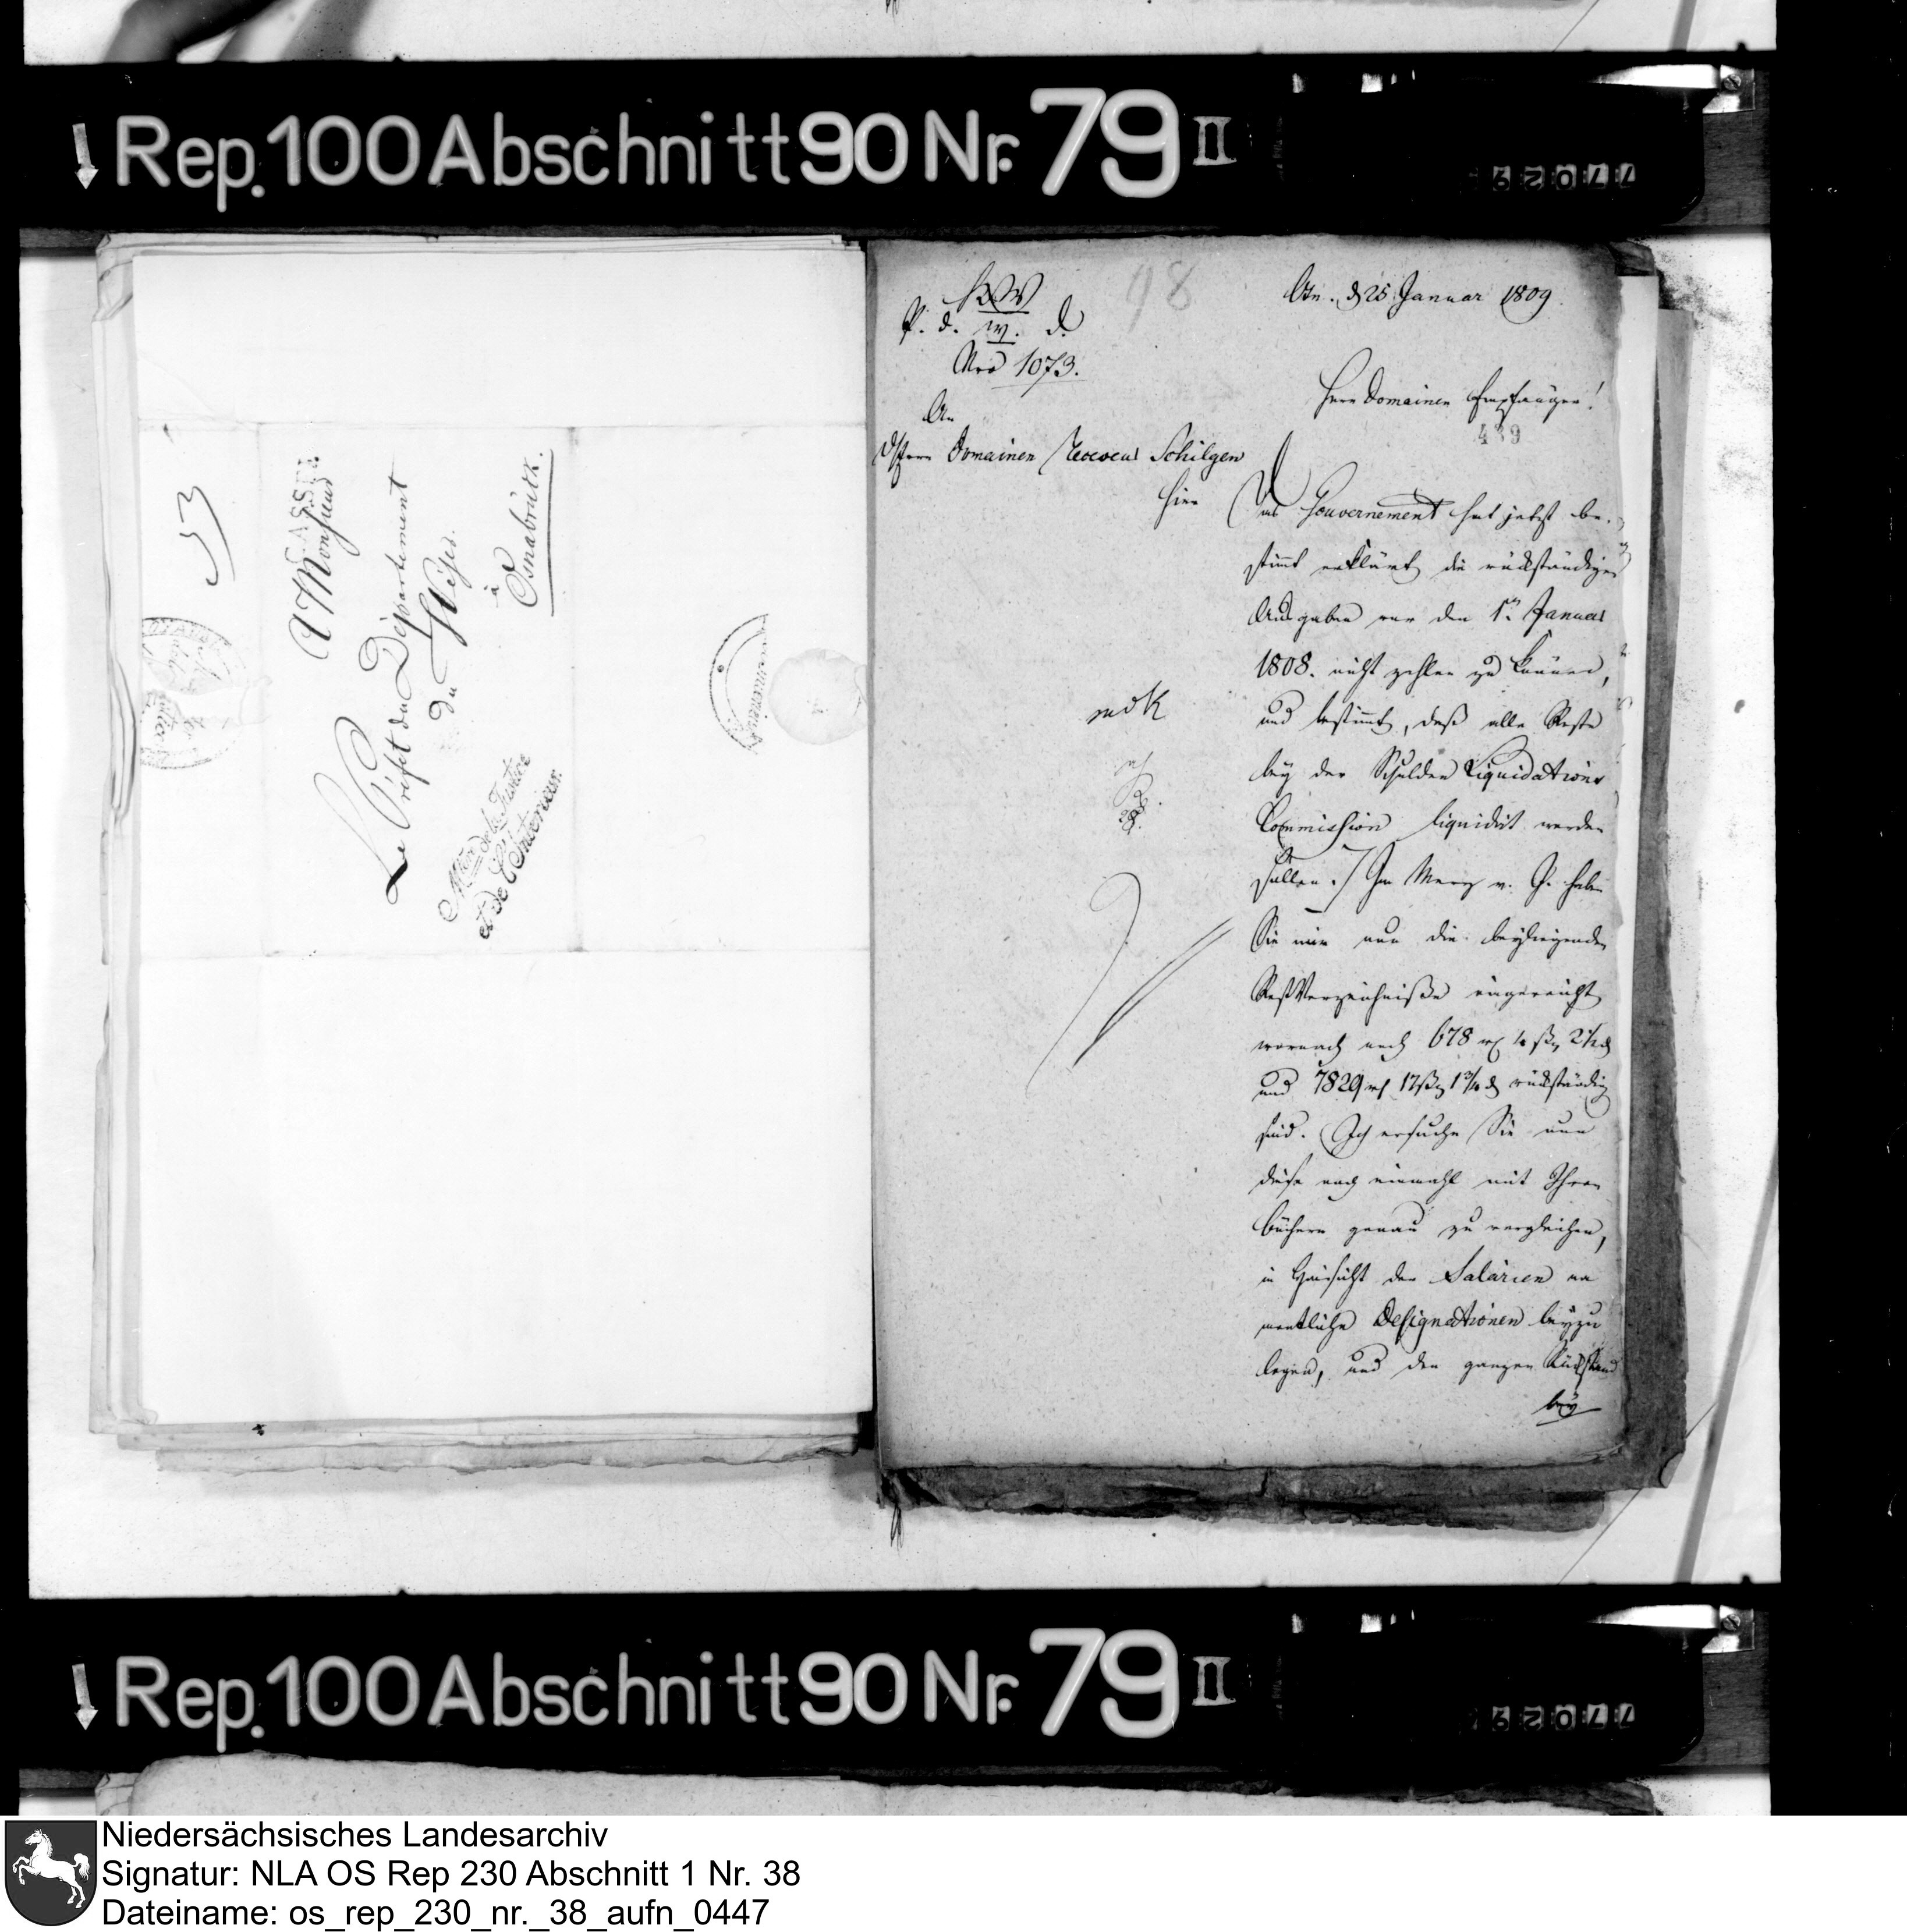 Rep. 100 Abschnitt 90 Nr. 79 II
77029
53
CASSEL
A Monsieur
Le Préfet du Département
du Weser.
à
Osnabrück.
Mtère de la Justice
et de l'Intérieur.
98
P. d. W. D.
Nro 1073.
An
Herrn Domainen Receveur Schilgen
hier
Osn. d 25 Januar 1809.
Herr Domainen Empfänger!
439
Das Gouvernement hat jetzt be-
stimt erklärt die rückständigen
Ausgaben vor den 1n Januar
1808. nicht zahlen zu können,
und bestimt, daß alle Reste
bey der Schulden Liquidations
Commission liquidirt werden
sollen. / Im Merz v. J. haben
Sie mir nun die beyliegenden
Rest Verzeichniße eingereicht
wornach noch 678 rt 2 1/2 d
und 7829 rt 17 ß 1 3/4 d rückständig
sind. Ich ersuche Sie nun
diese noch einmahl mit Ihren
Büchern genau zu vergleichen,
in Hinsicht der Salarien na
mentliche Designationen beyzu
legen, und den ganzen Rückstand
bey
Rep. 100 Abschnitt 90 Nr. 79 II
77029
Niedersächsisches Landesarchiv
Signatur: NLA OS Rep 230 Abschnitt 1 Nr. 38
Dateiname: os_rep_230_nr._38_aufn_0447